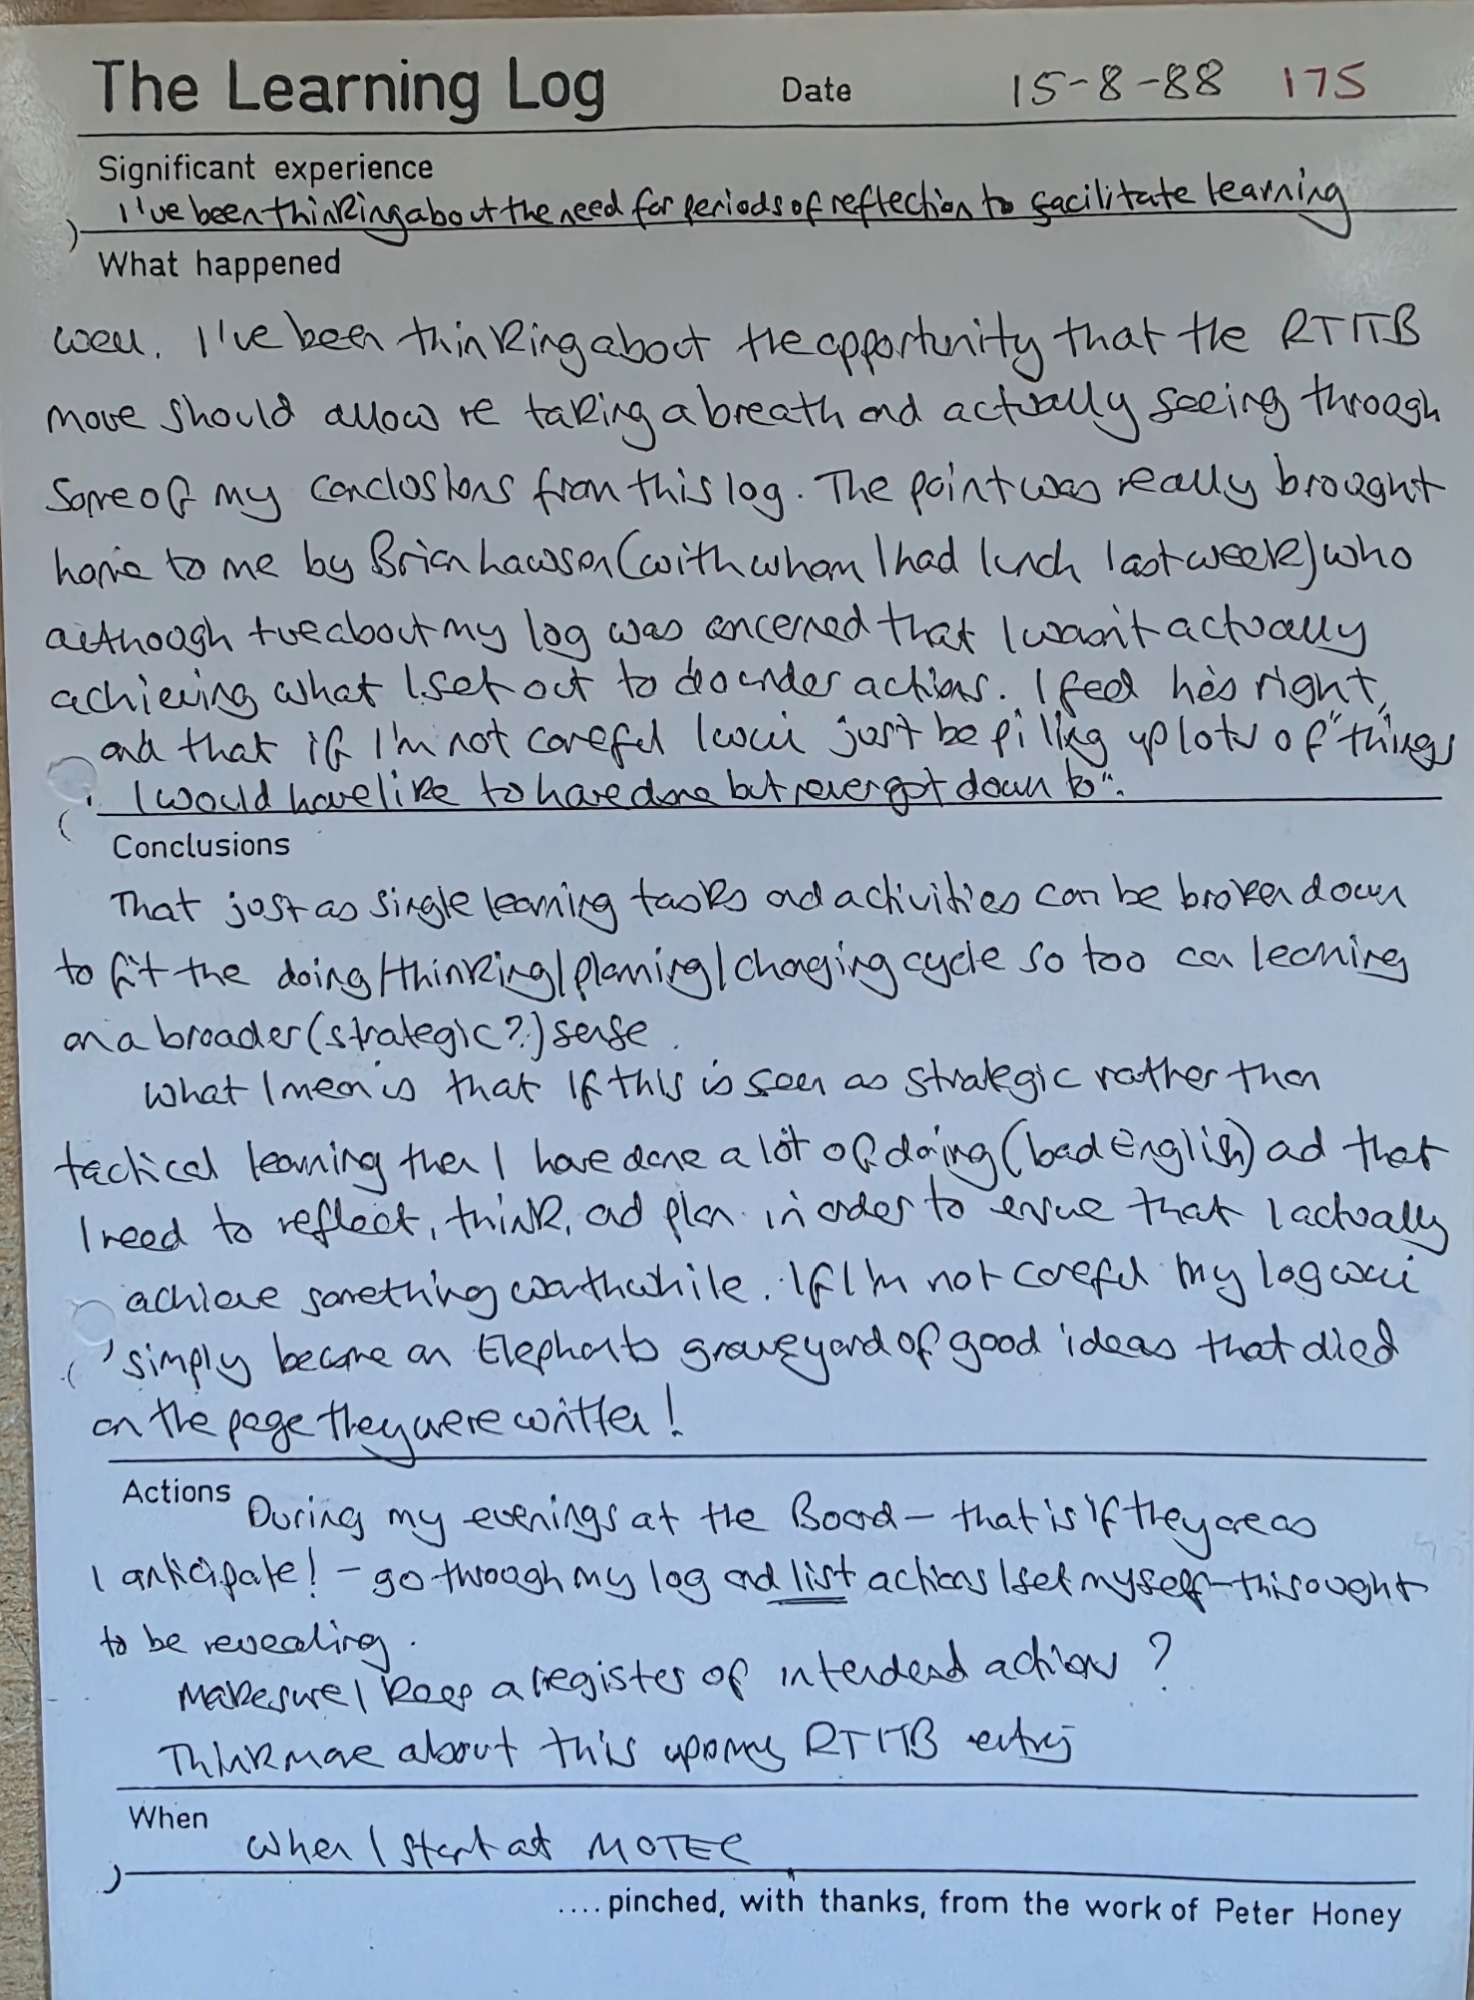 The Learning Log Date 15-8-88 175
Significant experience
I've been thinking about the need for periods of reflection to facilitate learning
What happened
Well. I've been thinking about the opportunity that the RTITB
move should allow re taking a breath and actually seeing through
some of my conclusions from this log. The point was really brought
home to me by Brian Lawson (with whom I had lunch last week) who
although +ve about my log was concerned that I wasn't actually
achieving what I set out to do under actions. I feel he's right,
and that if I'm not careful I will just be pilling up lots of "things
I would have like to have done but never got down to".
Conclusions
That just as single learning tasks and activities can be broken down
to fit the doing/thinking/planning/changing cycle so too can learning
on a broader (strategic?) sense.
What I mean is that if this is seen as strategic rather than
tactical learning then I have done a lot of doing (bad English) and that
I need to reflect, think, and plan in order to ensure that I actually
achieve something worthwhile. If I'm not careful my log will
simply become an Elephants graveyard of good ideas that died
on the page they were written!
Actions During my evenings at the Board - that is if they are as
I anticipate! - go through my log and list actions I set myself - this ought
to be revealing.
Make sure I keep a register of intended action?
Think more about this upon my RTITB entry
When When I start at MOTEC
.... pinched, with thanks, from the work of Peter Honey